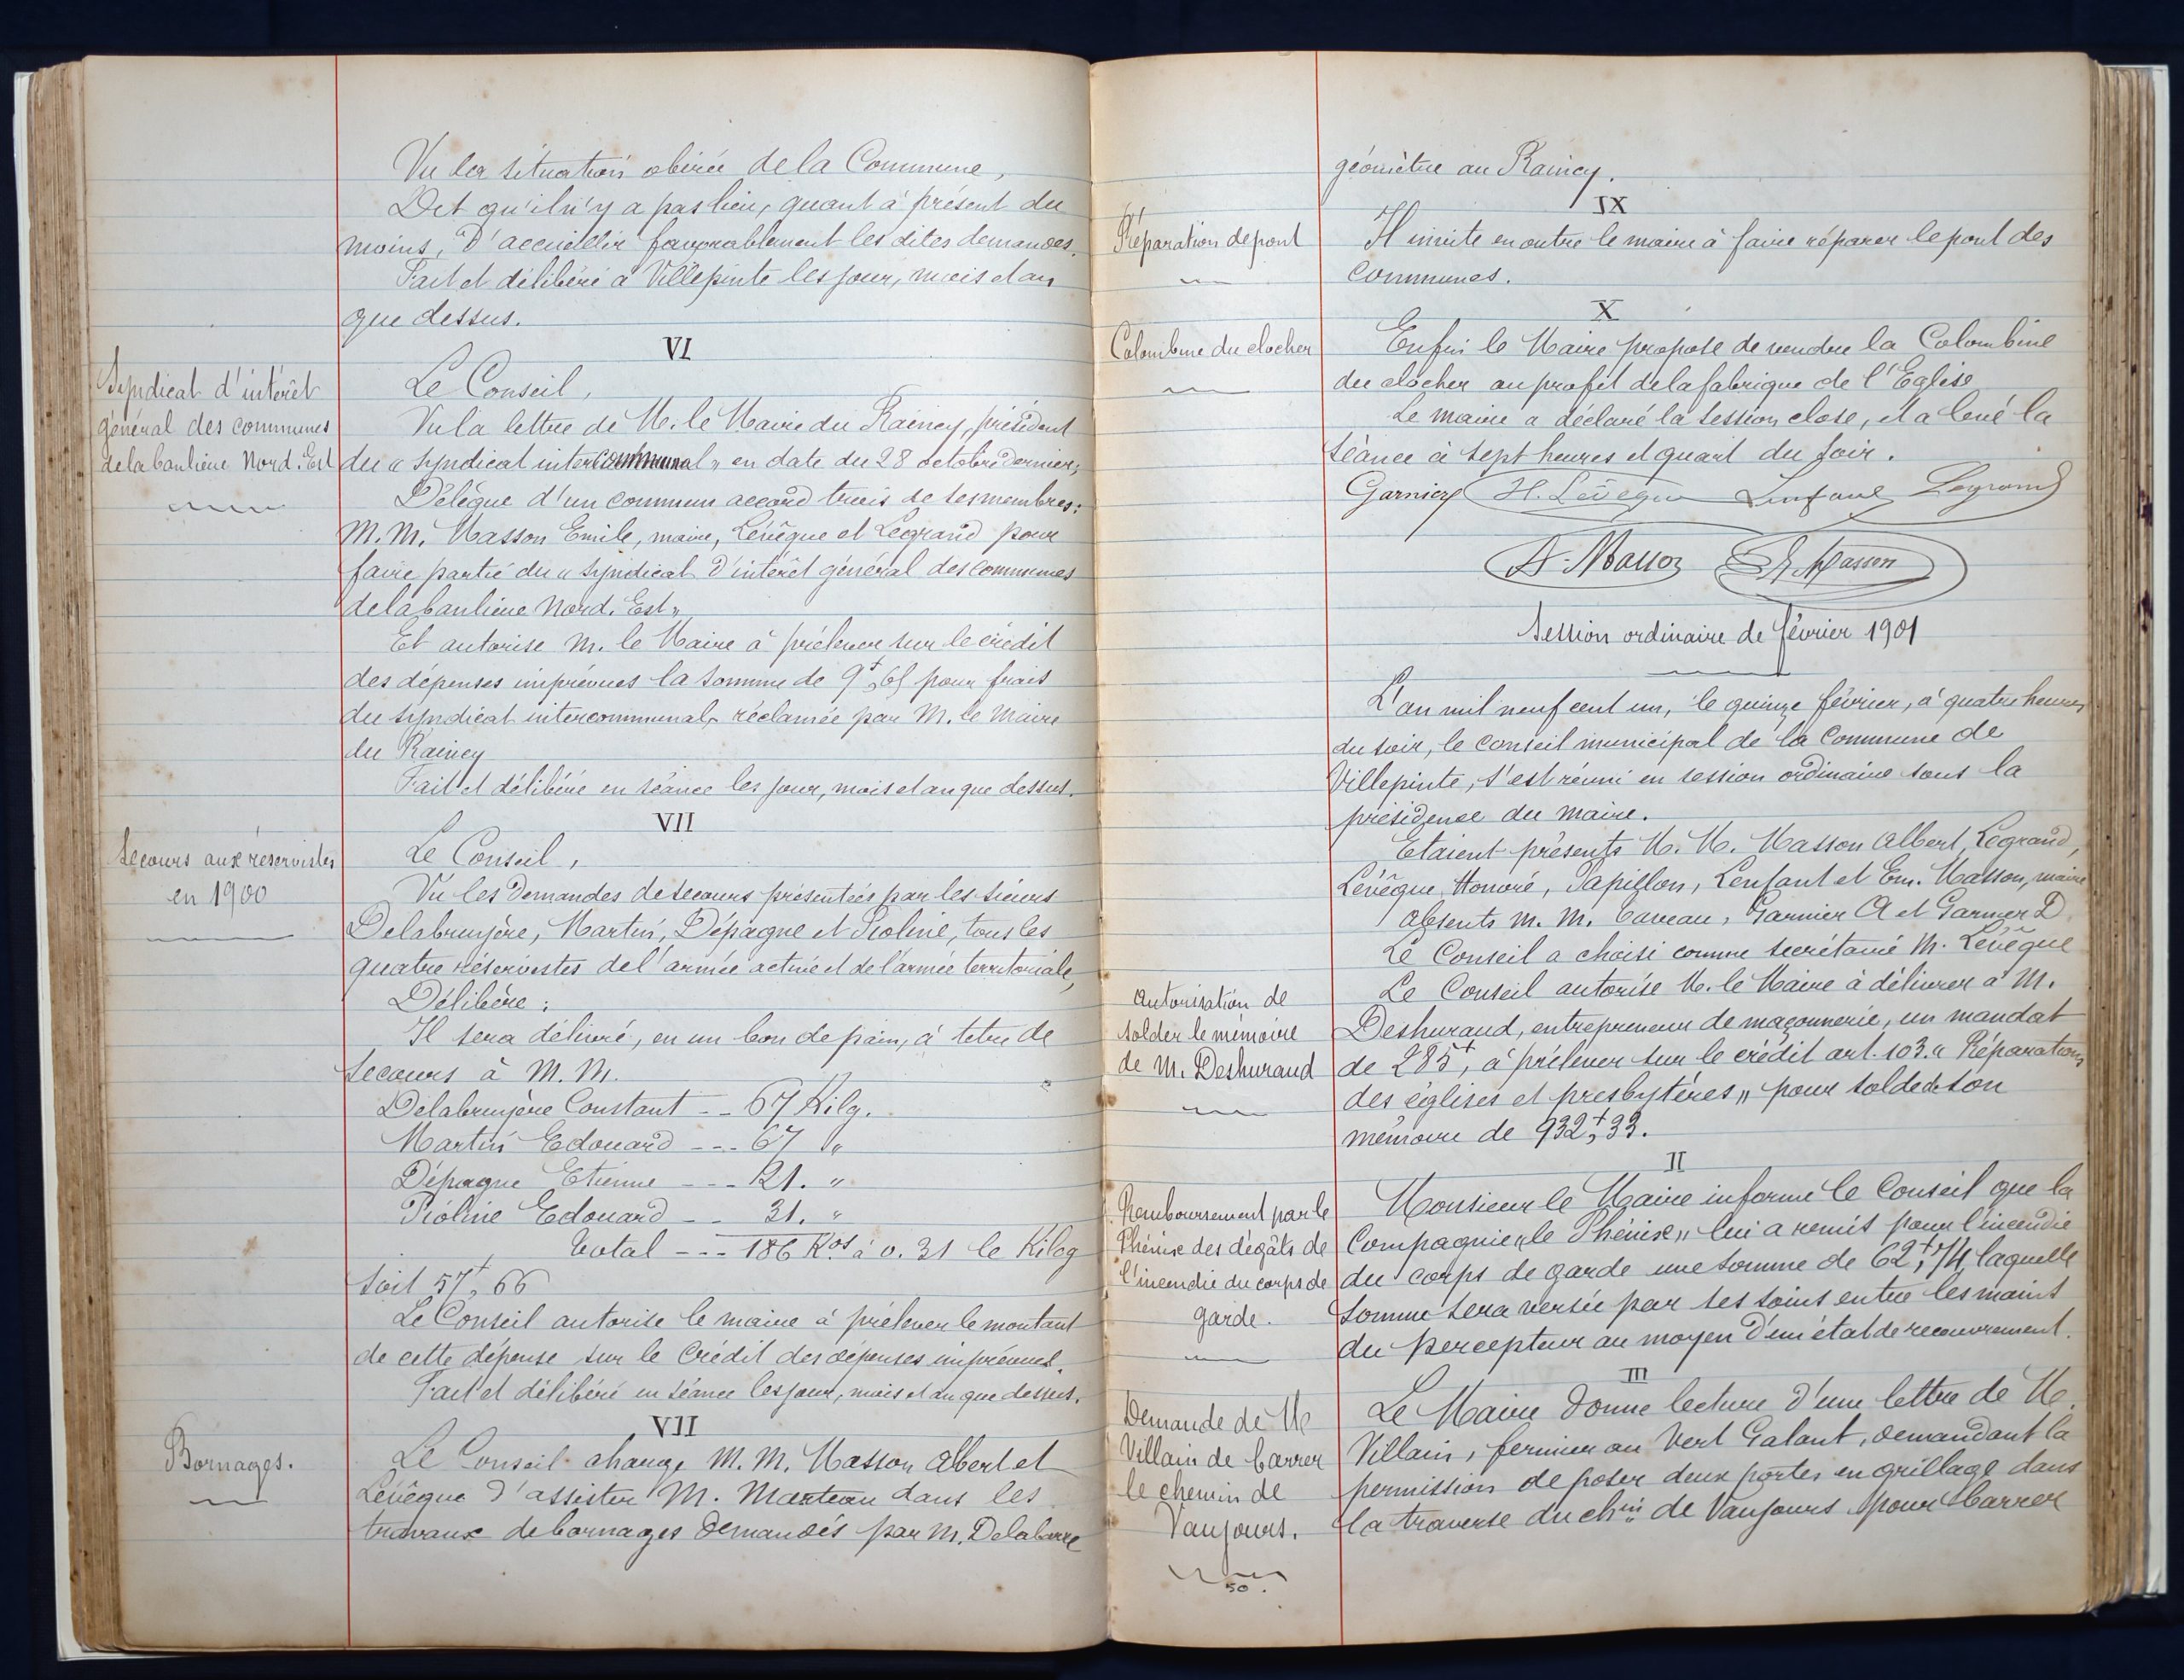 Vu la situation obérée de la Commune,
Dit qu'il n'y a pas lieu, quant à présent du
moins, d'accueillir favorablement les dites demandes.
Fait et délibéré à Villepinte les jour, mois et an
que dessus.
VI
Syndicat d'intérêt
général des communes
de la banlieue Nord. Est
Le Conseil,
Vu la lettre de M. le Maire du Raincy, président
du « Syndicat intercommunal » en date du 28 octobre dernier,
Délègue d'un commun accord trois de ses membres:
M. M. Masson Emile, maire, Lévêque et Legrand pour
faire partie du « Syndicat d'intérêt général des communes
de la banlieue Nord. Est »
Et autorise M. le Maire à prélever sur le crédit
des dépenses imprévues la somme de 9f,65 pour frais
du syndicat intercommunal, réclamée par M. le Maire
du Raincy
Fait et délibéré en séance les jour, mois et an que dessus.
VII
Secours aux réservistes
en 1900
Le Conseil,
Vu les demandes de secours présentées par les sieurs
Delabruyère, Martin, Dépagne et Pioline, tous les
quatre réservistes de l'armée active et de l'armée territoriale,
Délibère :
Il sera délivré, en un bon de pain, à titre de
secours à M. M.
Delabruyère Constant -- 67 Kilg.
Martin Edouard --- 67 "
Dépagne Etienne --- 21. "
Pioline Edouard -- 31. "
Total --- 186 Kos à 0.31 le Kilog
soit 57f,66
Le Conseil autorise le maire à prélever le montant
de cette dépense sur le Crédit des dépenses imprévues.
Fait et délibéré en séance les jour, mois et an que dessus.
VII
Bornages.
Le Conseil charge M. M. Masson Albert et
Lévêque d'assister M. Marteau dans les
travaux de bornages demandés par M. Delabarre
géomètre au Raincy.
IX
Réparation de pont
Il invite en outre le maire à faire réparer le pont des
communes.
X
Colombine du clocher
Enfin le Maire propose de vendre la Colombine
du clocher au profit de la fabrique de l'Eglise
Le maire a déclaré la session close, et a levé la
séance à sept heures et quart du soir.
Garnier H. Lévêque Lenfant Legrand
A. Masson E. Masson
Session ordinaire de février 1901
L'an mil neuf cent un, le quinze février, à quatre heures
du soir, le conseil municipal de la Commune de
Villepinte, s'est réuni en session ordinaire sous la
présidence du maire.
Etaient présents M. M. Masson Albert, Legrand,
Lévêque Honoré, Papillon, Lenfant et Em. Masson, maire
Absents M. M. Caveau, Garnier A et Garnier D.
Le Conseil a choisi comme secrétaire M. Lévêque
Autorisation de
solder le mémoire
de M. Deshuraud
Le Conseil autorise M. le Maire à délivrer à M.
Deshuraud, entrepreneur de maçonnerie, un mandat
de 285f, à prélever sur le crédit art. 103 « Réparations
des églises et presbytères » pour solde de son
mémoire de 932f,33.
II
Remboursement par le
Phénix des dégâts de
l'incendie du corps de
garde.
Monsieur le Maire informe le Conseil que la
Compagnie « le Phénix » lui a remis pour l'incendie
du corps de garde une somme de 62f,74, laquelle
somme sera versée par ses soins entre les mains
du percepteur au moyen d'un état de recouvrement.
III
Demande de M
Villain de barrer
le chemin de
Vaujours.
Le Maire donne lecture d'une lettre de M.
Villain, fermier au Vert Galant, demandant la
permission de poser deux portes en grillage dans
la traverse du chin de Vaujours pour barrer
50.